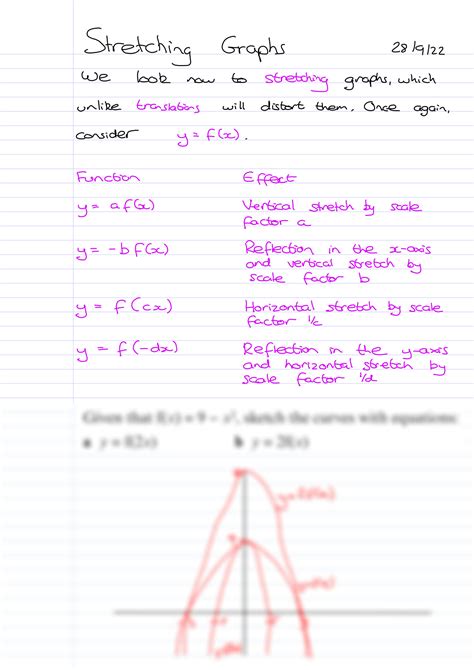 Stretching Graphs 28/9/22
We look now to stretching graphs, which
unlike translations will distort them. Once again,
consider y = f(x).
Function Effect
y = a f(x) Vertical stretch by scale
factor a
y = -b f(x) Reflection in the x-axis
and vertical stretch by
scale factor b
y = f(cx) Horizontal stretch by scale
factor 1/c
y = f(-dx) Reflection in the y-axis
and horizontal stretch by
scale factor 1/d
Given that f(x) = 9 – x², sketch the curves with equations:
a y = f(2x) b y = 2f(x)